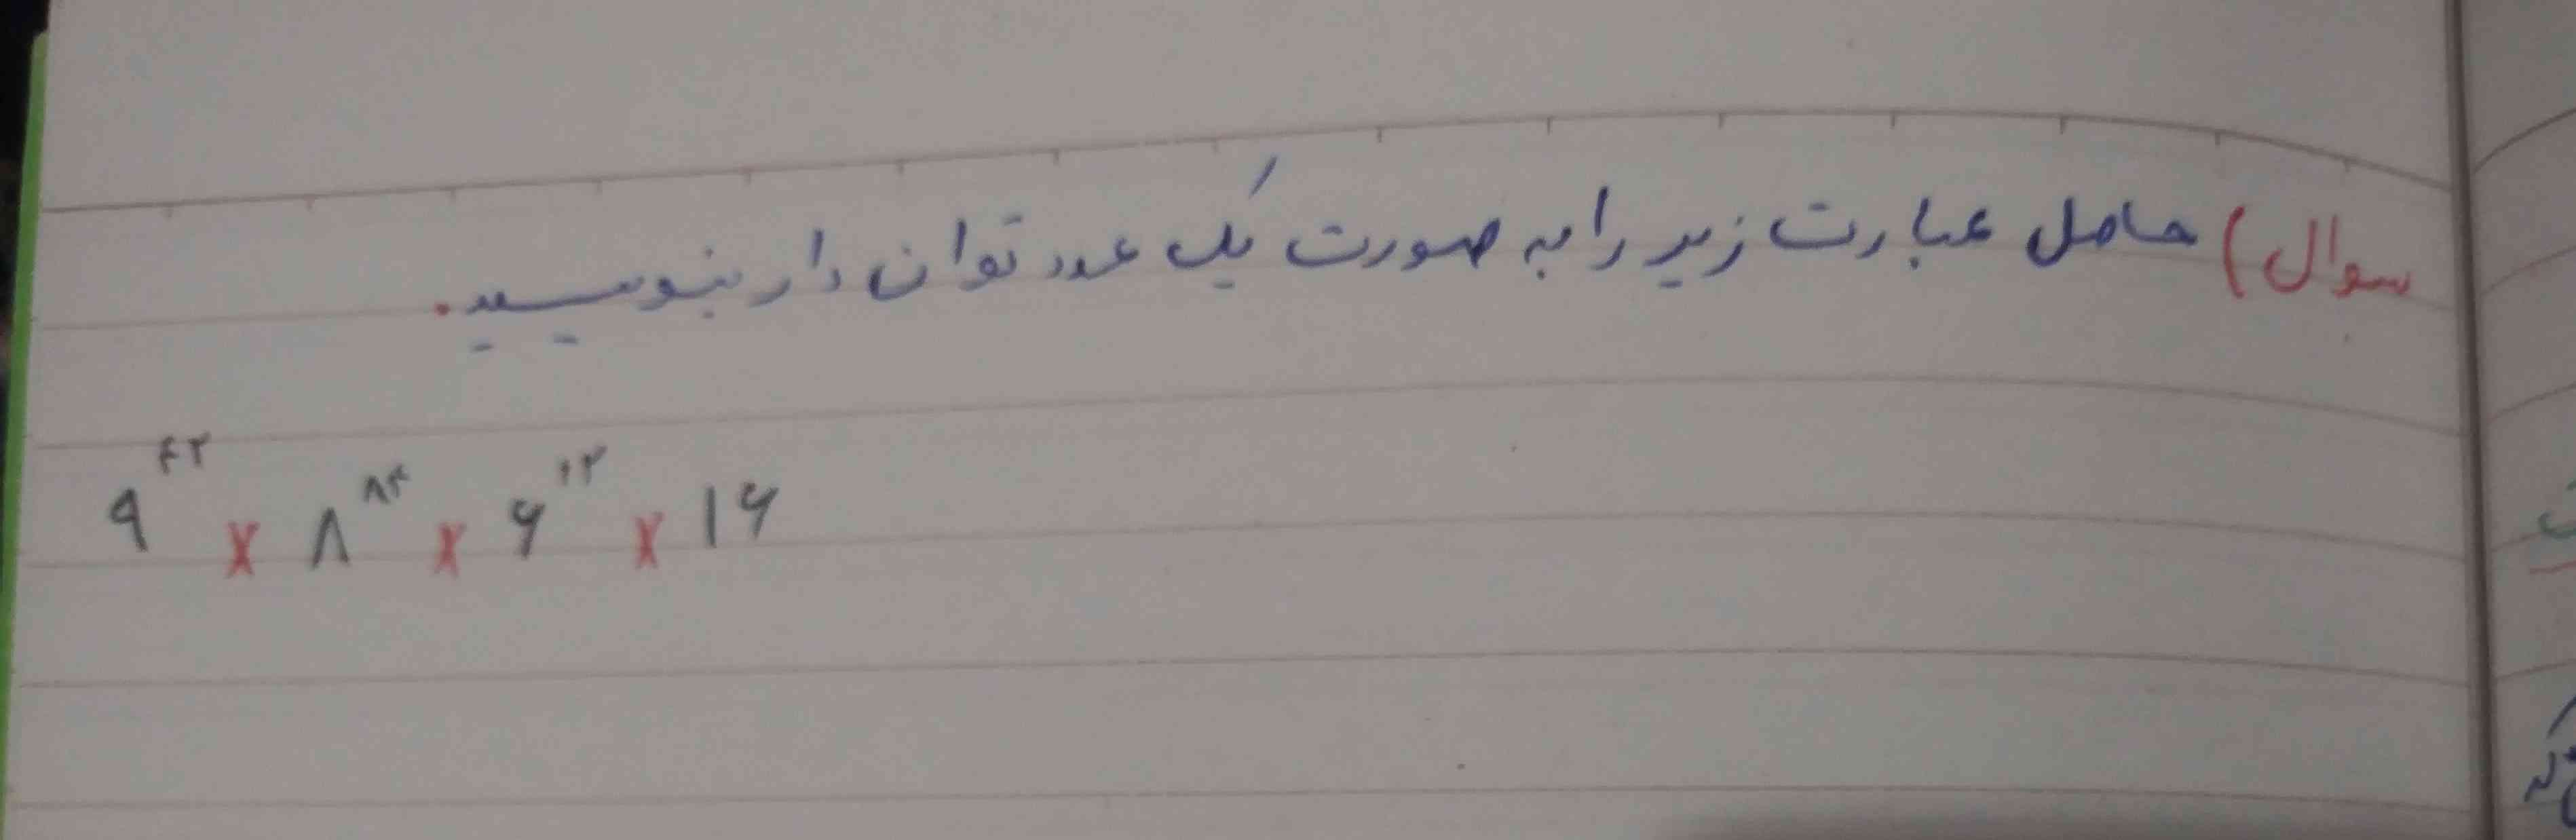 سوال) حاصل عبارت زیر را به صورت یک عدد توان دار بنویسید.
۹^۴۲ × ۸^۸۴ × ۶^۱۲ × ۱۶